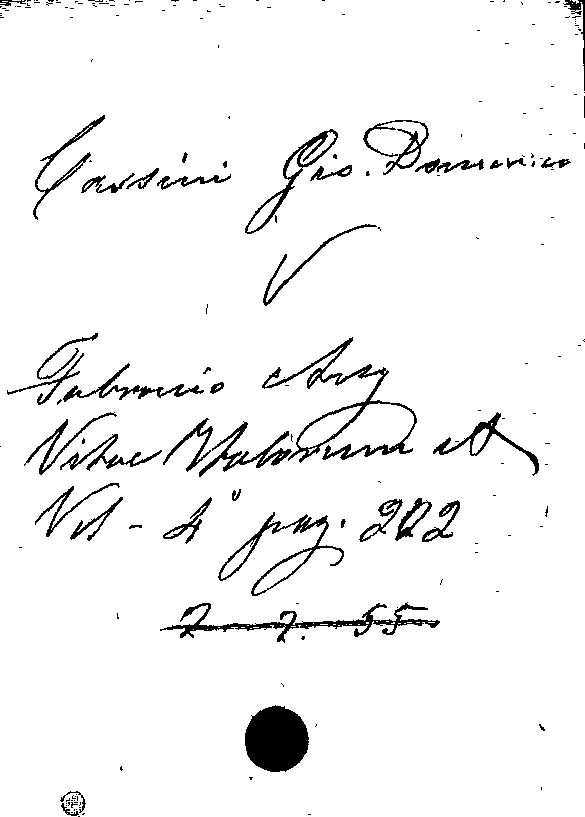 Cassini Gio. Domenico
V
Fabronio Ang
Vitae Italorum et
Vol - 4° pag. 202
2. 2. 55.